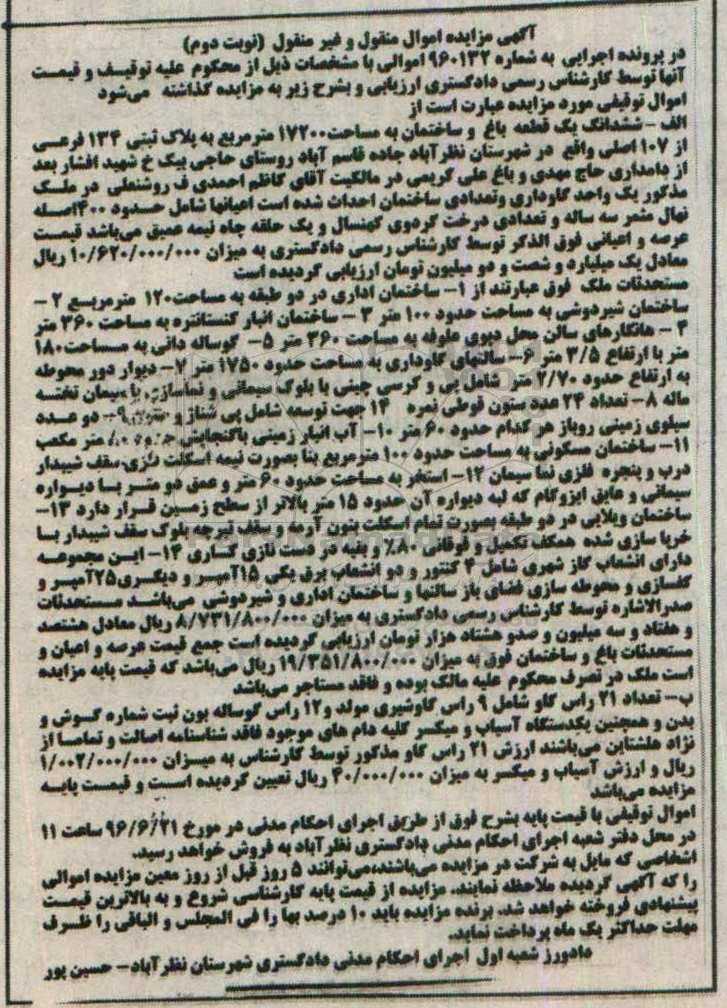 آگهی مزایده اموال منقول و غیر منقول (نوبت دوم)
در پرونده اجرایی به شماره ۹۶۰۱۳۲ اموالی با مشخصات ذیل از محکوم علیه توقیف و قیمت
آنها توسط کارشناس رسمی دادگستری ارزیابی و بشرح زیر به مزایده گذاشته می‌شود
اموال توقیفی مورد مزایده عبارت است از
الف - ششدانگ یک قطعه باغ و ساختمان به مساحت۱۷۲۰۰ مترمربع به پلاک ثبتی ۱۳۴ فرعی
از ۱۰۷ اصلی واقع در شهرستان نظرآباد جاده قاسم آباد روستای حاجی بیک خ شهید افشار بعد
از دامداری حاج مهدی و باغ علی کریمی در مالکیت آقای کاظم احمدی ف روشنعلی در ملک
مذکور یک واحد گاوداری وتعدادی ساختمان احداث شده است اعیانها شامل حدود ۴۰۰اصله
نهال مثمر سه ساله و تعدادی درخت گردوی کهنسال و یک حلقه چاه نیمه عمیق می‌باشد قیمت
عرصه و اعیانی فوق الذکر توسط کارشناس رسمی دادگستری به میزان ۱۰/۶۲۰/۰۰۰/۰۰۰ ریال
معادل یک میلیارد و شصت و دو میلیون تومان ارزیابی گردیده است
مستحدثات ملک فوق عبارتند از ۱- ساختمان اداری در دو طبقه به مساحت۱۲۰ مترمربع ۲ -
ساختمان شیردوشی به مساحت حدود ۱۰۰ متر ۳ - ساختمان انبار کنستانتره به مساحت ۳۶۰ متر
۴ - هانگارهای سالن محل دپوی علوفه به مساحت ۳۶۰ متر ۵- گوساله دانی به مساحت۱۸۰
متر با ارتفاع ۳/۵ متر ۶- سالنهای گاوداری به مساحت حدود ۱۷۵۰ متر ۷- دیوار دور محوطه
به ارتفاع حدود ۲/۷۰ متر شامل پی و کرسی چینی با بلوک سیمانی و نماسازی با سیمان تخته
ماله ۸- تعداد ۲۴ عدد ستون قوطی نمره ۱۴ جهت توسعه شامل پی شناژ و ۹- دو عدد
سیلوی زمینی روباز هر کدام حدود ۶۰ متر ۱۰- آب انبار زمینی باگنجایش متر مکعب
۱۱- ساختمان مسکونی به مساحت حدود ۱۰۰ مترمربع بنا بصورت نیمه اسکلت فلزی سقف شیبدار
درب و پنجره فلزی نما سیمان ۱۲- استخر به مساحت حدود ۶۰ متر و عمق دو متر با دیواره
سیمانی و عایق ایزوگام که لبه دیواره آن حدود ۱۵ متر بالاتر از سطح زمین قرار دارد ۱۳-
ساختمان ویلایی در دو طبقه بصورت تمام اسکلت بتون آرمه و سقف تیرچه بلوک سقف شیبدار با
خرپا سازی شده همکف تکمیل و فوقانی ۸۰٪ و بقیه در دست نازی کاری ۱۴- این مجموعه
دارای انشعاب گاز شهری شامل ۴ کنتور و دو انشعاب برق یکی ۱۵آمپر و دیگری۲۵آمپر و
کفسازی و محوطه سازی فضای باز سالنها و ساختمان اداری و شیردوشی می‌باشد مستحدثات
صدرالاشاره توسط کارشناس رسمی دادگستری به میزان ۸/۷۳۱/۸۰۰/۰۰۰ ریال معادل هشتصد
و هفتاد و سه میلیون و صدو هشتاد هزار تومان ارزیابی گردیده است جمع قیمت عرصه و اعیان و
مستحدثات باغ و ساختمان فوق به میزان ۱۹/۳۵۱/۸۰۰/۰۰۰ ریال می‌باشد که قیمت پایه مزایده
است ملک در تصرف محکوم علیه مالک بوده و فاقد مستاجر می‌باشد
ب- تعداد ۲۱ راس گاو شامل ۹ راس گاوشیری مولد و۱۲ راس گوساله بون ثبت شماره گوش و
بدن و همچنین یکدستگاه آسیاب و میکسر کلیه دام های موجود فاقد شناسنامه اصالت و تماما از
نژاد هلشتاین می‌باشند ارزش ۲۱ راس گاو مذکور توسط کارشناس به میزان ۱/۰۰۲/۰۰۰/۰۰۰
ریال و ارزش آسیاب و میکسر به میزان ۴۰/۰۰۰/۰۰۰ ریال تعیین گردیده است و قیمت پایه
مزایده می‌باشد
اموال توقیفی با قیمت پایه بشرح فوق از طریق اجرای احکام مدنی در مورخ ۹۶/۶/۲۱ ساعت ۱۱
در محل دفتر شعبه اجرای احکام مدنی دادگستری نظرآباد به فروش خواهد رسید.
اشخاصی که مایل به شرکت در مزایده می‌باشند،می‌توانند ۵ روز قبل از روز معین مزایده اموالی
را که آگهی گردیده ملاحظه نمایند. مزایده از قیمت پایه کارشناسی شروع و به بالاترین قیمت
پیشنهادی فروخته خواهد شد. برنده مزایده باید ۱۰ درصد بها را فی المجلس و الباقی را ظرف
مهلت حداکثر یک ماه پرداخت نماید.
دادورز شعبه اول اجرای احکام مدنی دادگستری شهرستان نظرآباد- حسین پور